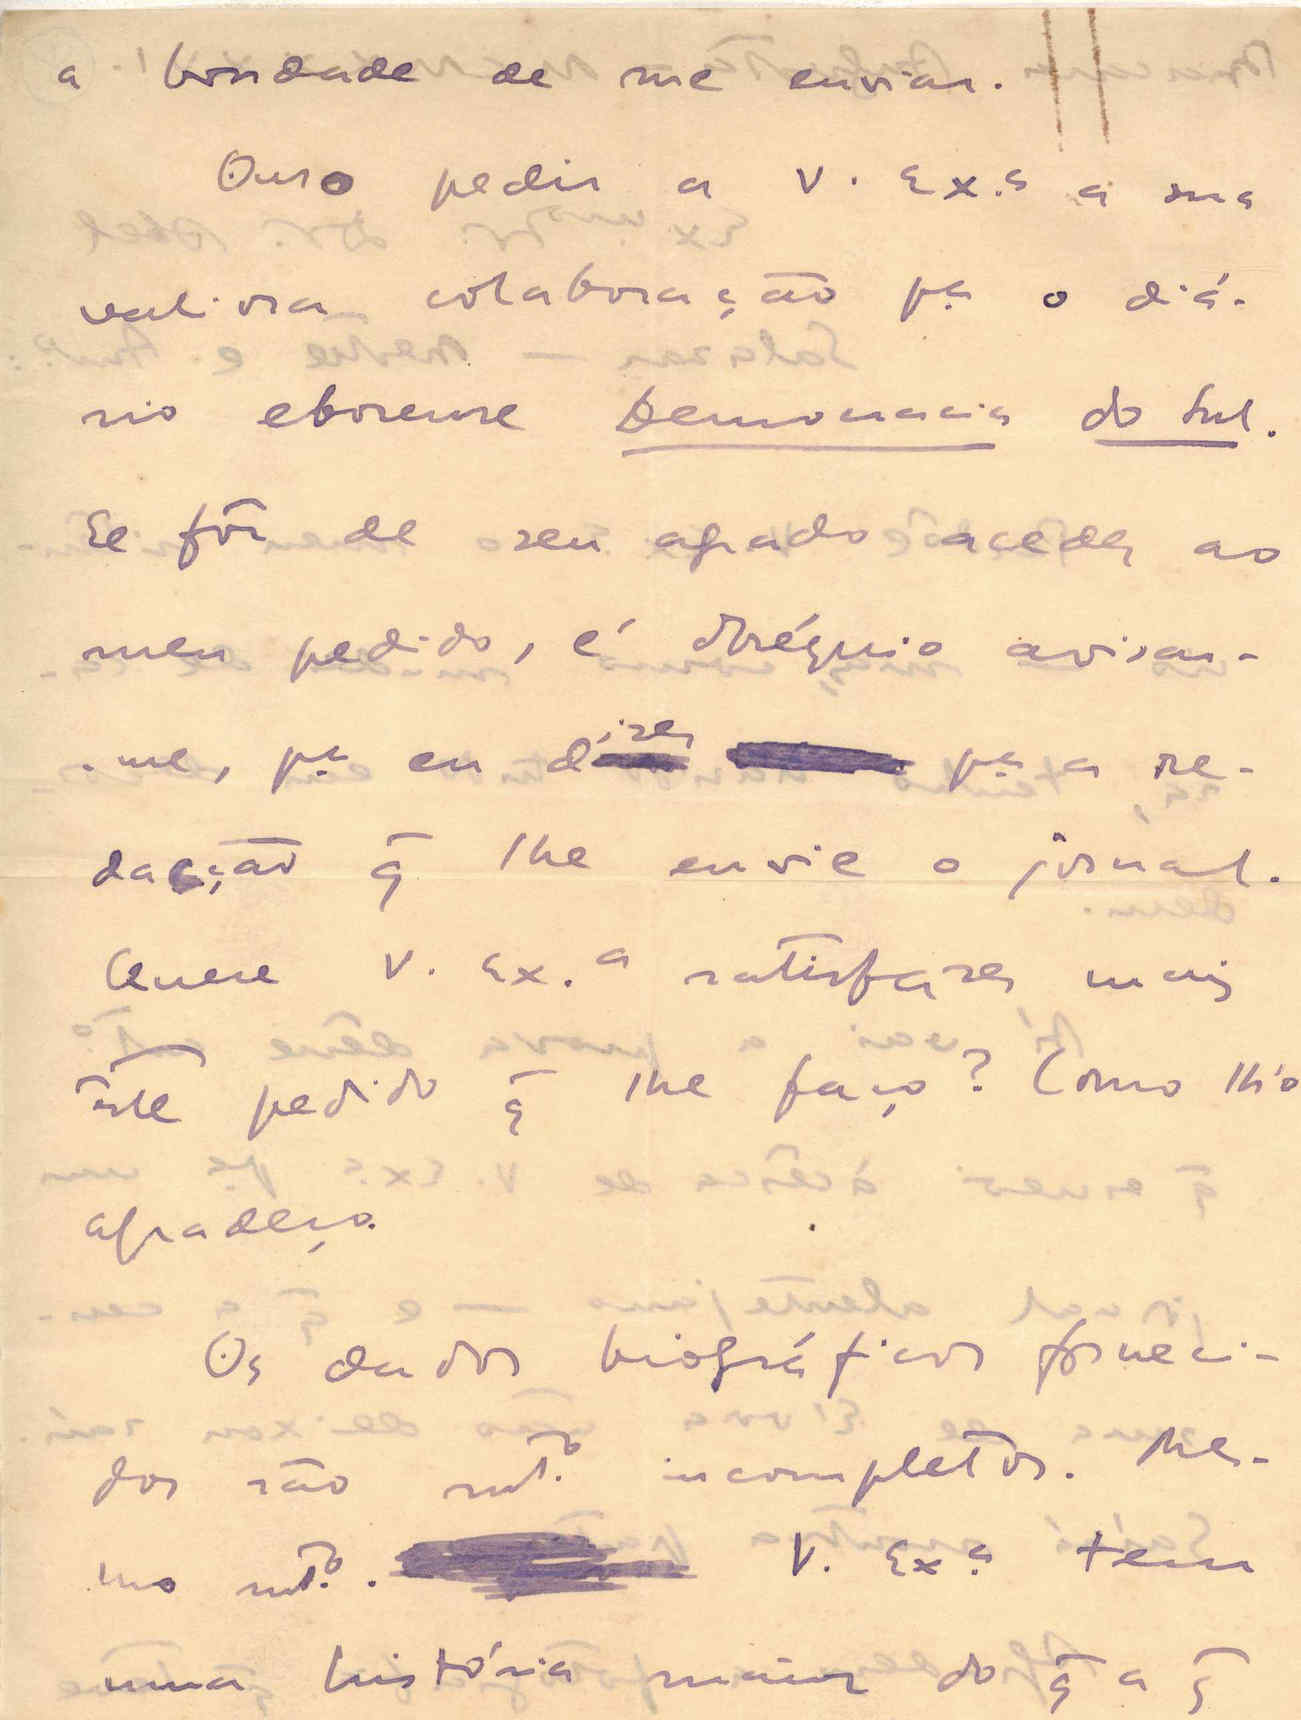 a bondade de me enviar.
Ouso pedir a V. Ex.ª a sua
valiosa colaboração pª o diá-
rio eborense Democracia do Sul.
Se fôr de seu agrado aceder ao
meu pedido, é obséquio avisar-
-me, pª eu dizer pª a re-
dacção q̃ lhe envie o jornal.
Quere V. Ex.ª satisfazer mais
êste pedido q̃ lhe faço? Como lh'o
agradeço.
Os dados biográficos forneci-
dos são mt.º incompletos. Mes-
mo mt.º. V. Ex.ª tem
uma história maior do q̃ a q̃